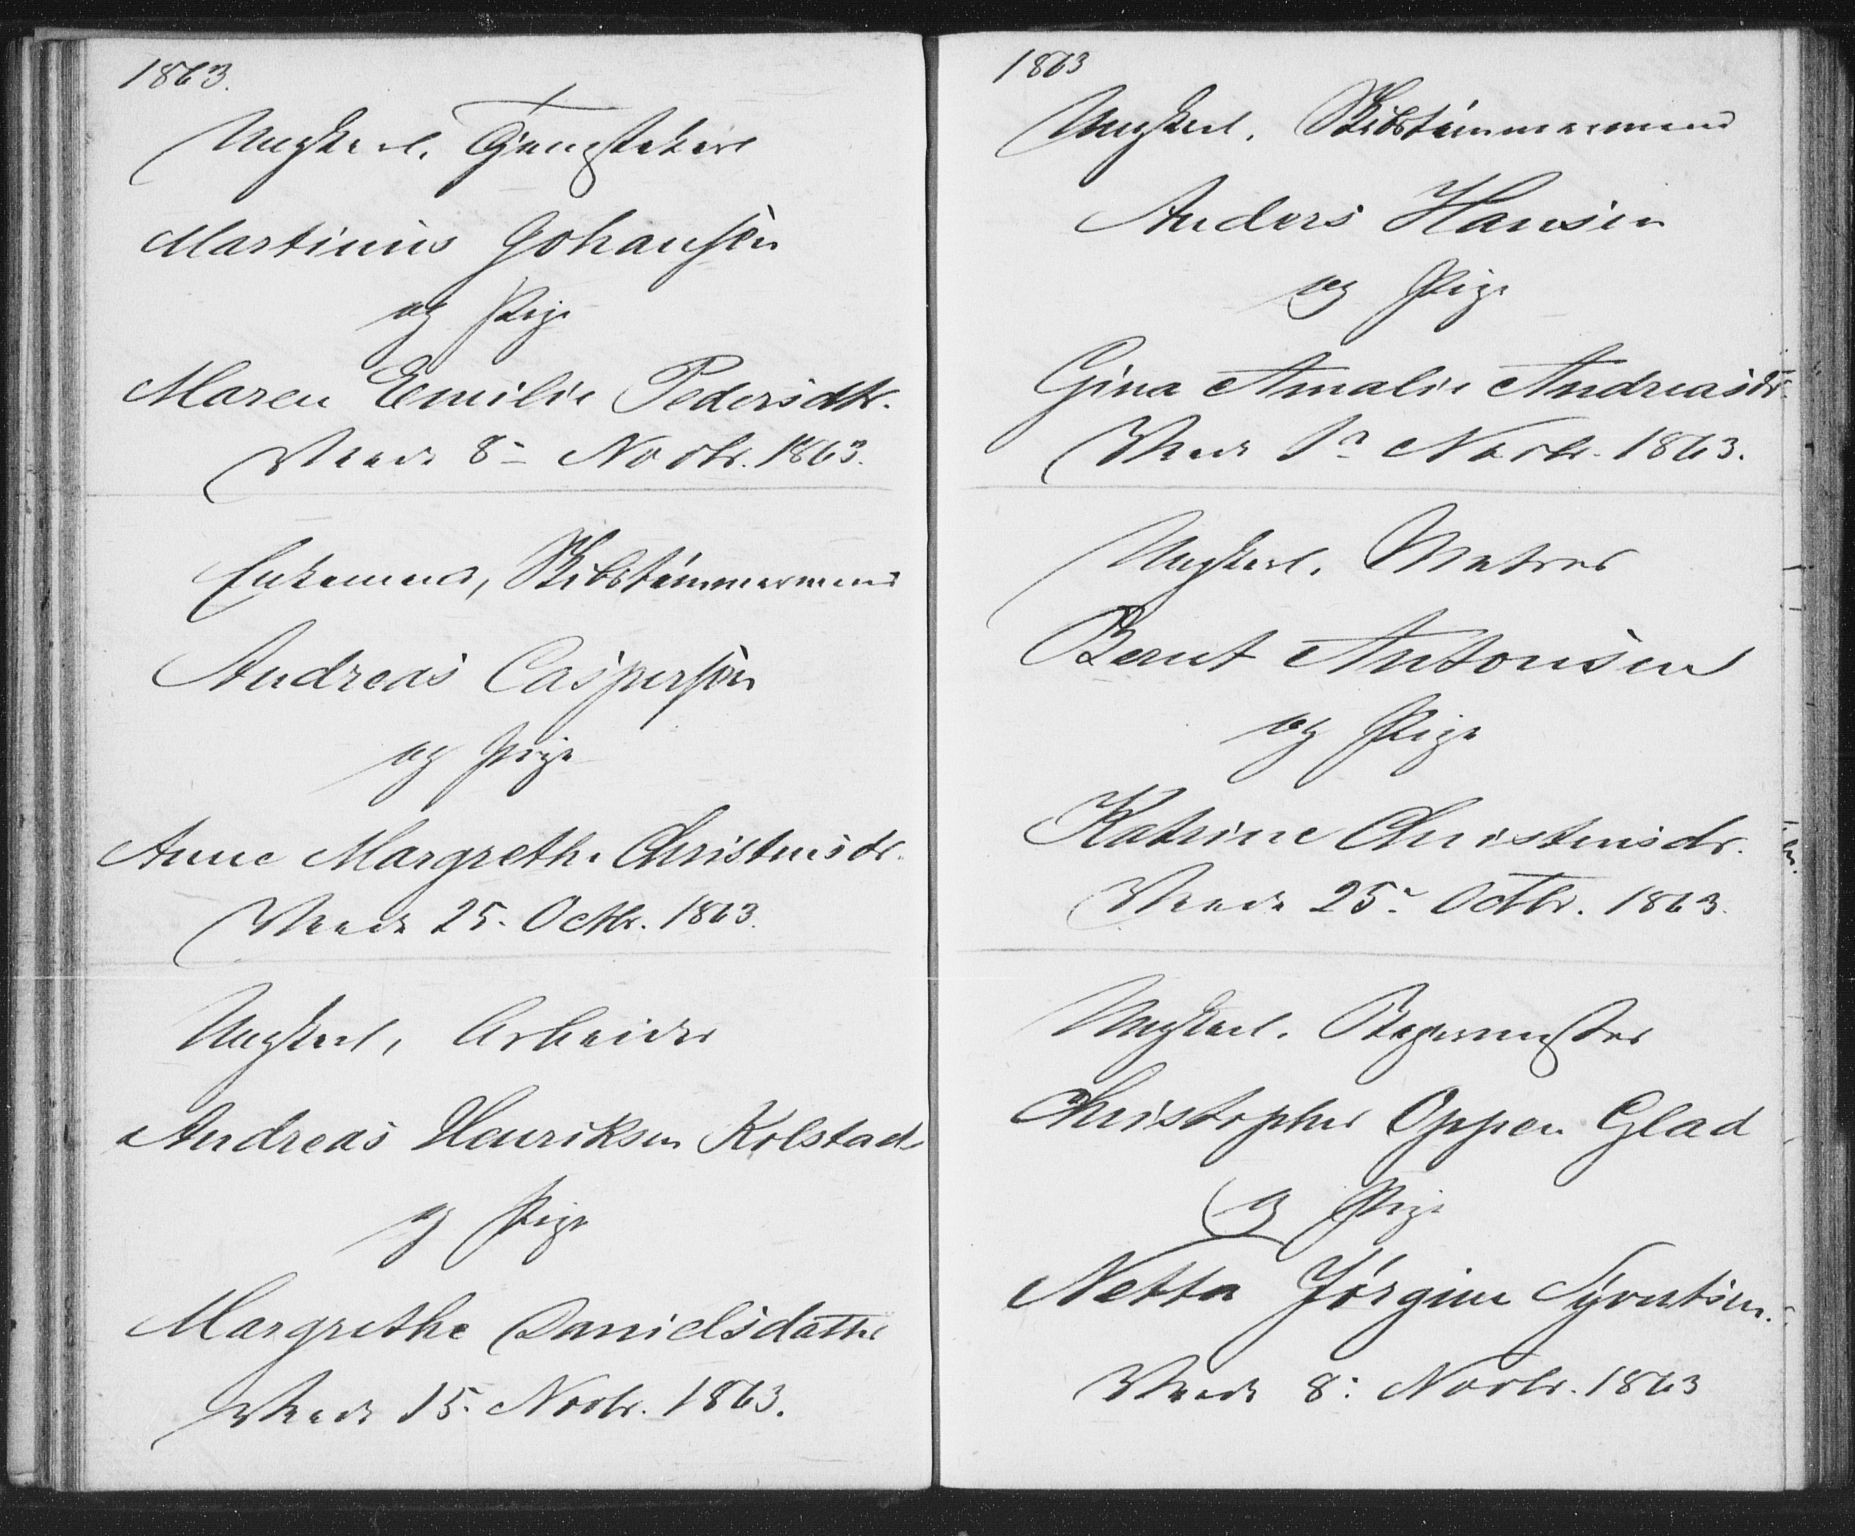 1863.
Ungkarl, Tjenestekarl
Martinius Johansen
og Pige
Maren Emilie Pedersdtr.
Viede 8 Novbr. 1863.
Enkemand, Skibstømmermand
Andreas Caspersen
og Pige
Anne Margrethe Christensdr.
Viede 25. Octbr. 1863.
Ungkarl, Arbeider
Andreas Henriksen Kolstad
og Pige
Margrethe Danielsdatter
Viede 15. Novbr. 1863.
1863
Ungkarl. Skibstømmermand
Anders Hansen
og Pige
Gina Amalie Andreasdr.
Novbr. 1863.
Ungkarl. Matros
Bernt Antonsen
og Pige
Katrine Christensdr.
Viede 25. Octbr. 1863.
Ungkarl.
Christopher Oppen Glad
og Pige
Netta Jørgine Syvertsen.
Viede 8. Novbr. 1863